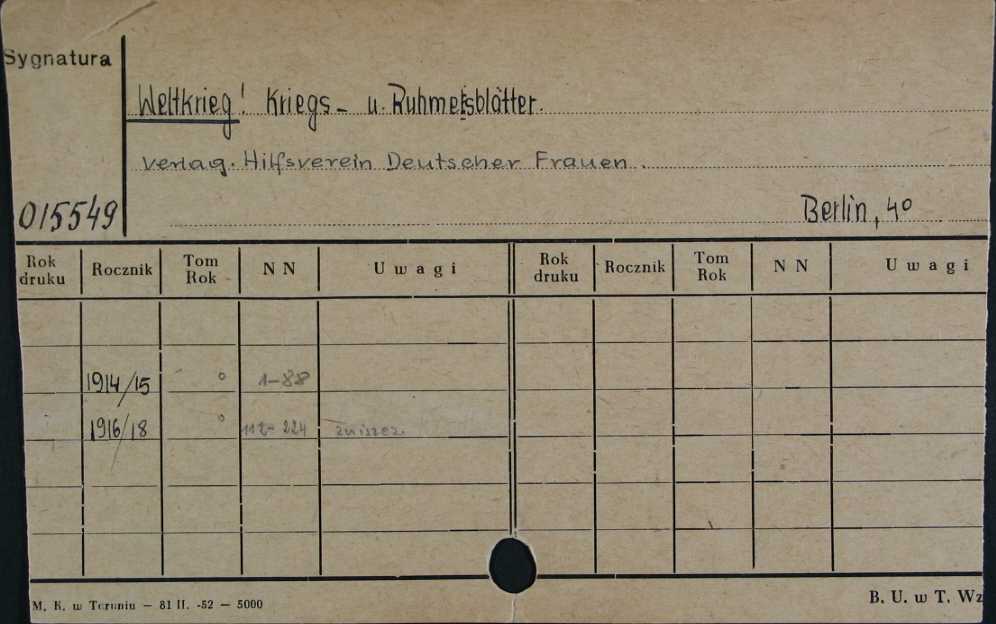 Sygnatura
Weltkrieg! Kriegs- u. Ruhmesblätter.
Verlag. Hilfsverein Deutscher Frauen.
015549
Berlin, 4°
Rok druku Rocznik Tom Rok NN Uwagi Rok druku Rocznik Tom Rok NN Uwagi
1914/15 ° 1-88
1916/18 ° 112-224 zniszcz.
M. K. w Toruniu — 81 II. -52 — 5000
B. U. w T. Wz